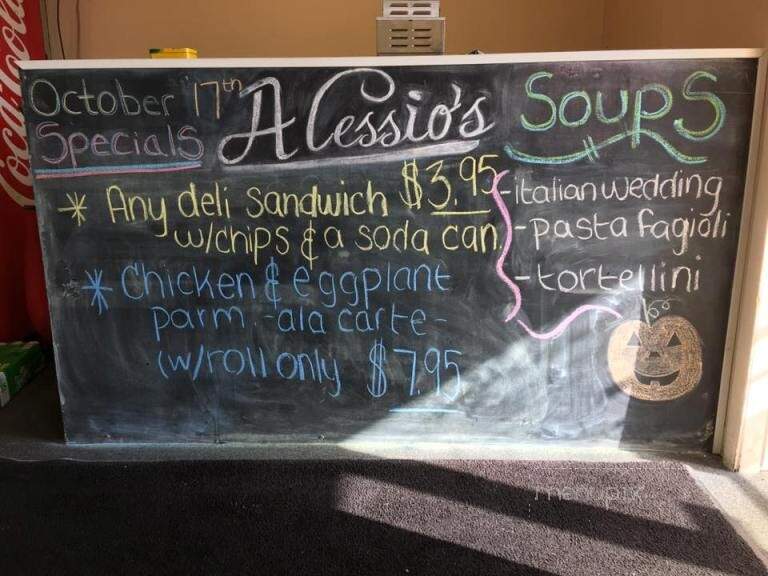 Coca-Cola
October 17th
Specials
Alessio's
* Any deli sandwich $3.95
w/chips & a soda can
* Chicken & eggplant
parm -ala carte-
(w/roll only $7.95
Soups
-italian wedding
-pasta fagioli
-tortellini
menupix